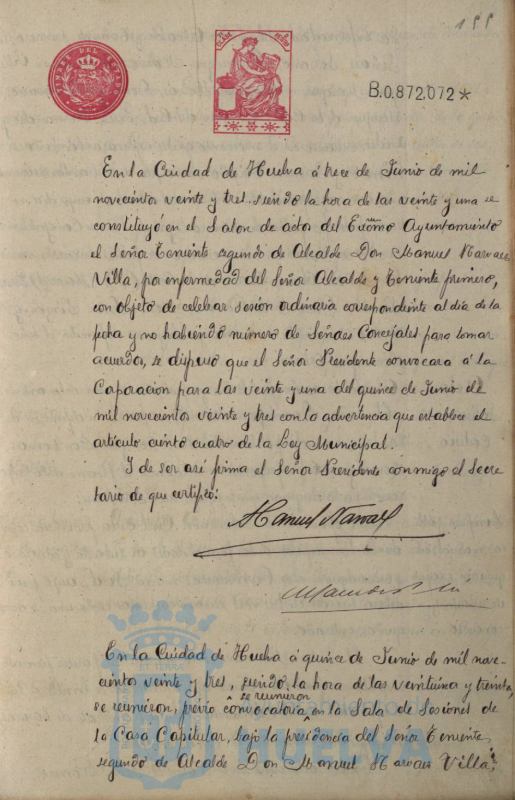 155
TIMBRE DEL ESTADO
B.0.872.072*
En la Ciudad de Huelva á trece de Junio de mil
novecientos veinte y tres siendo la hora de las veinte y una se
constituyó en el Salon de actos del Excmo Ayuntamiento
el Señor Teniente segundo de Alcalde Don Manuel Narvaez
Villa, por enfermedad del Señor Alcalde y Teniente primero,
con objeto de celebrar sesión ordinaria correspondiente al dia de la
fecha y no habiendo número de Señores Concejales para tomar
acuerdos, se dispuso que el Señor Presidente convocara á la
Corporacion para las veinte y una del quince de Junio de
mil novecientos veinte y tres con la advertencia que establece el
artículo ciento cuatro de la Ley Municipal.
Y de ser así firma el Señor Presidente conmigo el Secre
tario de que certifico:
Manuel Narvaez
En la Ciudad de Huelva á quince de Junio de mil nove-
ciento veinte y tres, siendo la hora de las veintiuna y treinta,
se reunieron
se reunieron, previo convocatoria, en la Sala de Sesiones de
la Casa Capitular, bajo la presidencia del Señor Teniente
segundo de Alcalde Don Manuel Narvaez Villa,
HUELVA